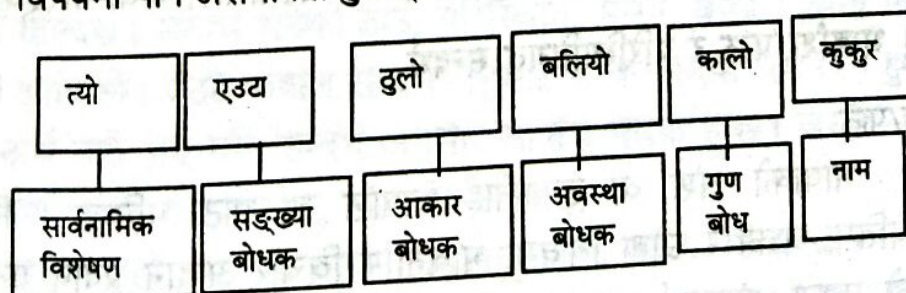 त्यो एउटा ठुलो बलियो कालो कुकुर
सार्वनामिक विशेषण
सङ्ख्या बोधक
आकार बोधक
अवस्था बोधक
गुण बोध
नाम